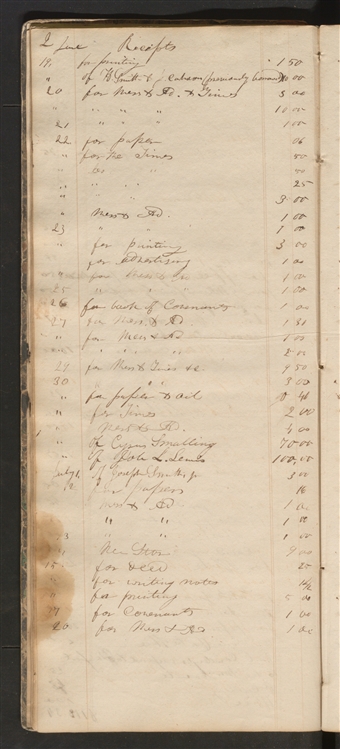 2 June Receipts
19 for printing 1 50
" of
20 for Mess & Ad. & Times 5 00
" " " " 10 00
21 " " " 1 00
22 for paper 06
" for the Times 50
" " " 50
" " " 25
" " " 3 00
" Mess & Ad. 1 00
23 " " 1 00
" for printing 3 00
for advertising 1 00
" for 1 00
25 " " " 1 00
26 for book of Covenants 1 00
27 for Mess & Ad 1 31
" for Mess & Ad 1 00
" " " " " 2 00
29 for Mess & Times &c 9 50
30 " " " 3 00
" for paper & ail
" for Times 2 00
" Mess & Ad. 4 00
" of Cyrus Smalling 70 00
" of Job L. Lewis 100,00
July 1 of Joseph Smith jr
for papers 16
Mess & Ad 1 00
" " 1 00
" " 1 00
New Store 9 00
15 for deed 20
" for writing notes
" for printing 5 00
17 for Covenants 1 00
20 for Mess & Ad 1 00